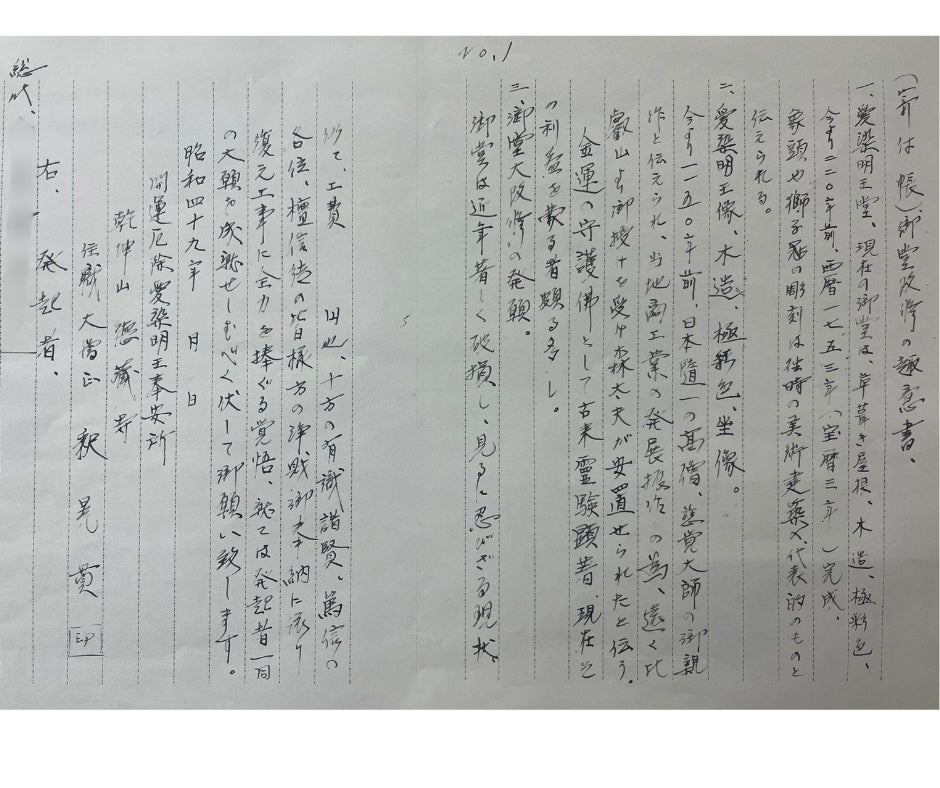 NO.1
(寄は帳)御堂改修の趣意書、
一、愛染明王堂、現在の御堂は、草葺き屋根、木造、極彩色、
今より二二〇年前、西暦一七五三年(宝暦三年)完成、
象頭や獅子の彫刻は往時の美術建築の代表的のものと
伝えられる。
二、愛染明王像、木造、極彩色、坐像。
今より一一五〇年前、日本随一の高僧、慈覚大師の御親
作と伝えられ、当地商工業の発展振作の為、遠く比
叡山より御授けを受け森太夫が安置せられたと伝う。
金運の守護佛として古来霊験顕著、現在も
の利益を蒙る者頗る多し。
三、御堂大改修の発願。
御堂は近年著しく破損し、見るに忍びざる現状。
以て、工費 円也、十方の有識諸賢、篤信の
各位、檀信徒の皆様方の浄財御奉納に依り
復元工事に全力を捧ぐる覚悟、就ては発起者一同
の大願を成就せしむべく伏して御願い致します。
昭和四十九年 月 日
開運厄除愛染明王奉安所
乾坤山 徳蔵寺
住職大僧正 釈晃貫 印
右、発起者。
総代、